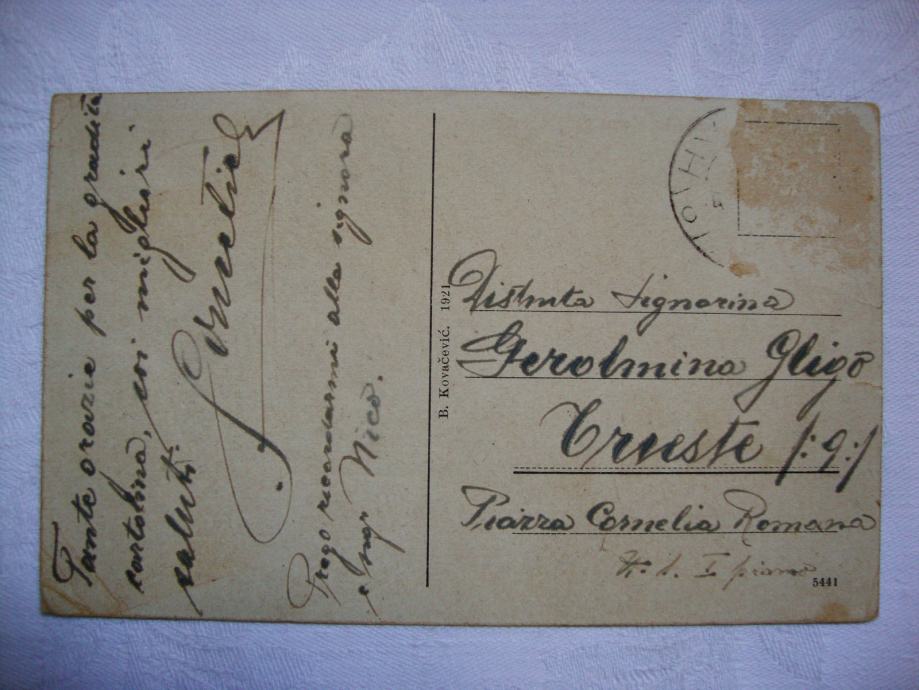 Tante grazie per la gradita
cartolina, coi migliori
saluti
Prego ricordarmi alla signora
e sigr Nicò.
B. Kovačević. 1921
Distinta Signorina
Gerolmina Gligo
Trieste /:9:/
Piazza Cornelia Romana
I piano
5441